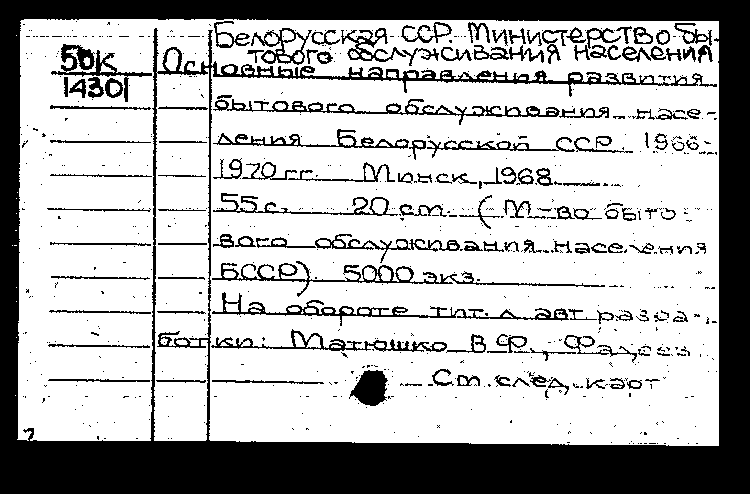 Белорусская ССР. Министерство бы-
тового обслуживания населения.
50К
14301
Основные направления развития
бытового обслуживания насе-
ления Белорусской ССР. 1966-
1970 гг. Минск, 1968.
55 с. 20 см. (М-во быто-
вого обслуживания населения
БССР). 5000 экз.
На обороте тит. л. авт. разра-
ботки: Матюшко В.Ф.,
См. след. карт